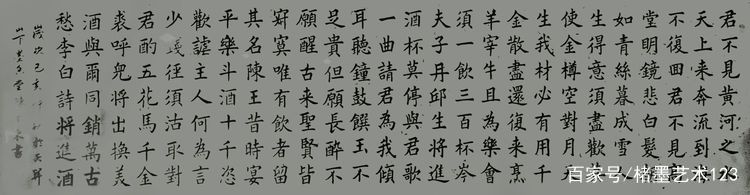 君不見黃河之
天上來奔流到
不復回君不見
堂明鏡悲白髮
如青絲暮成雪
生得意須盡歡
使金樽空對月
生我材必有用千
金散盡還復來烹
羊宰牛且為樂會
須一飲三百杯岑
夫子丹邱生將進
酒杯莫停與君歌
一曲請君為我傾
耳聽鐘鼓饌玉不
足貴但願長醉不
願醒古來聖賢皆
寂寞唯有飲者留
其名陳王昔時宴
平樂斗酒十千恣
歡謔主人何為言
少錢徑須沽取對
君酌五花馬千金
裘呼兒將出換美
酒與爾同銷萬古
愁李白詩將進酒
歲次己亥
百家号/楮墨艺术123